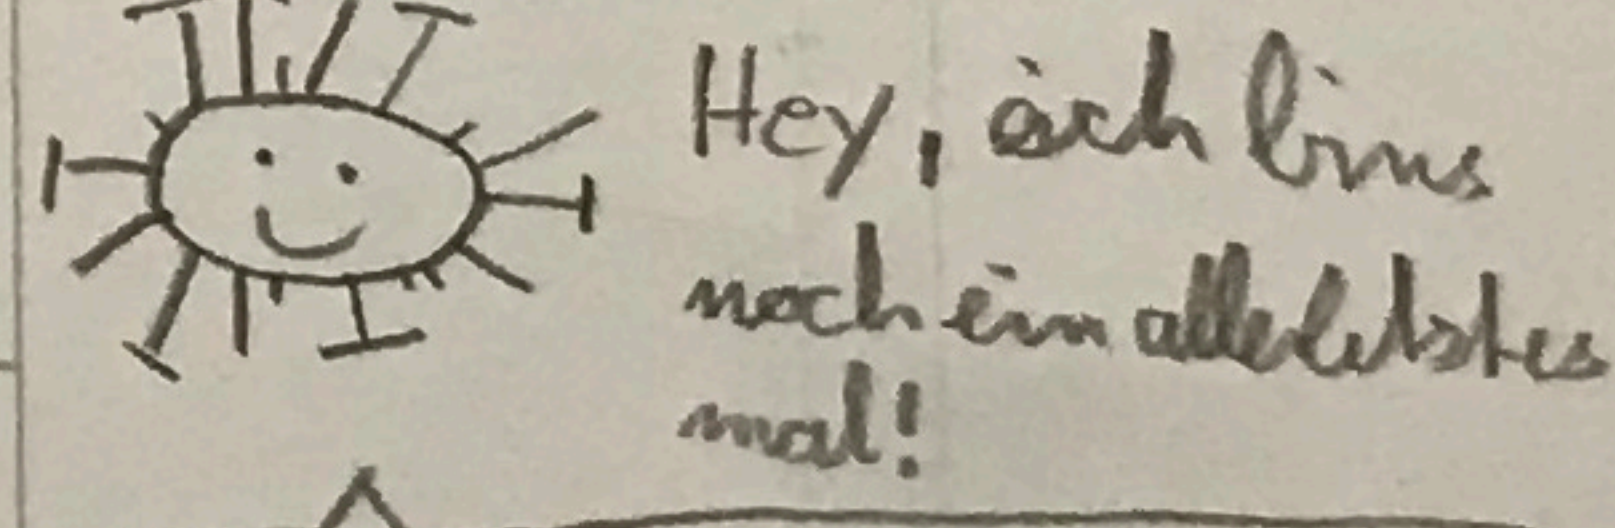 Hey, ich bins
noch ein allerletztes
mal!